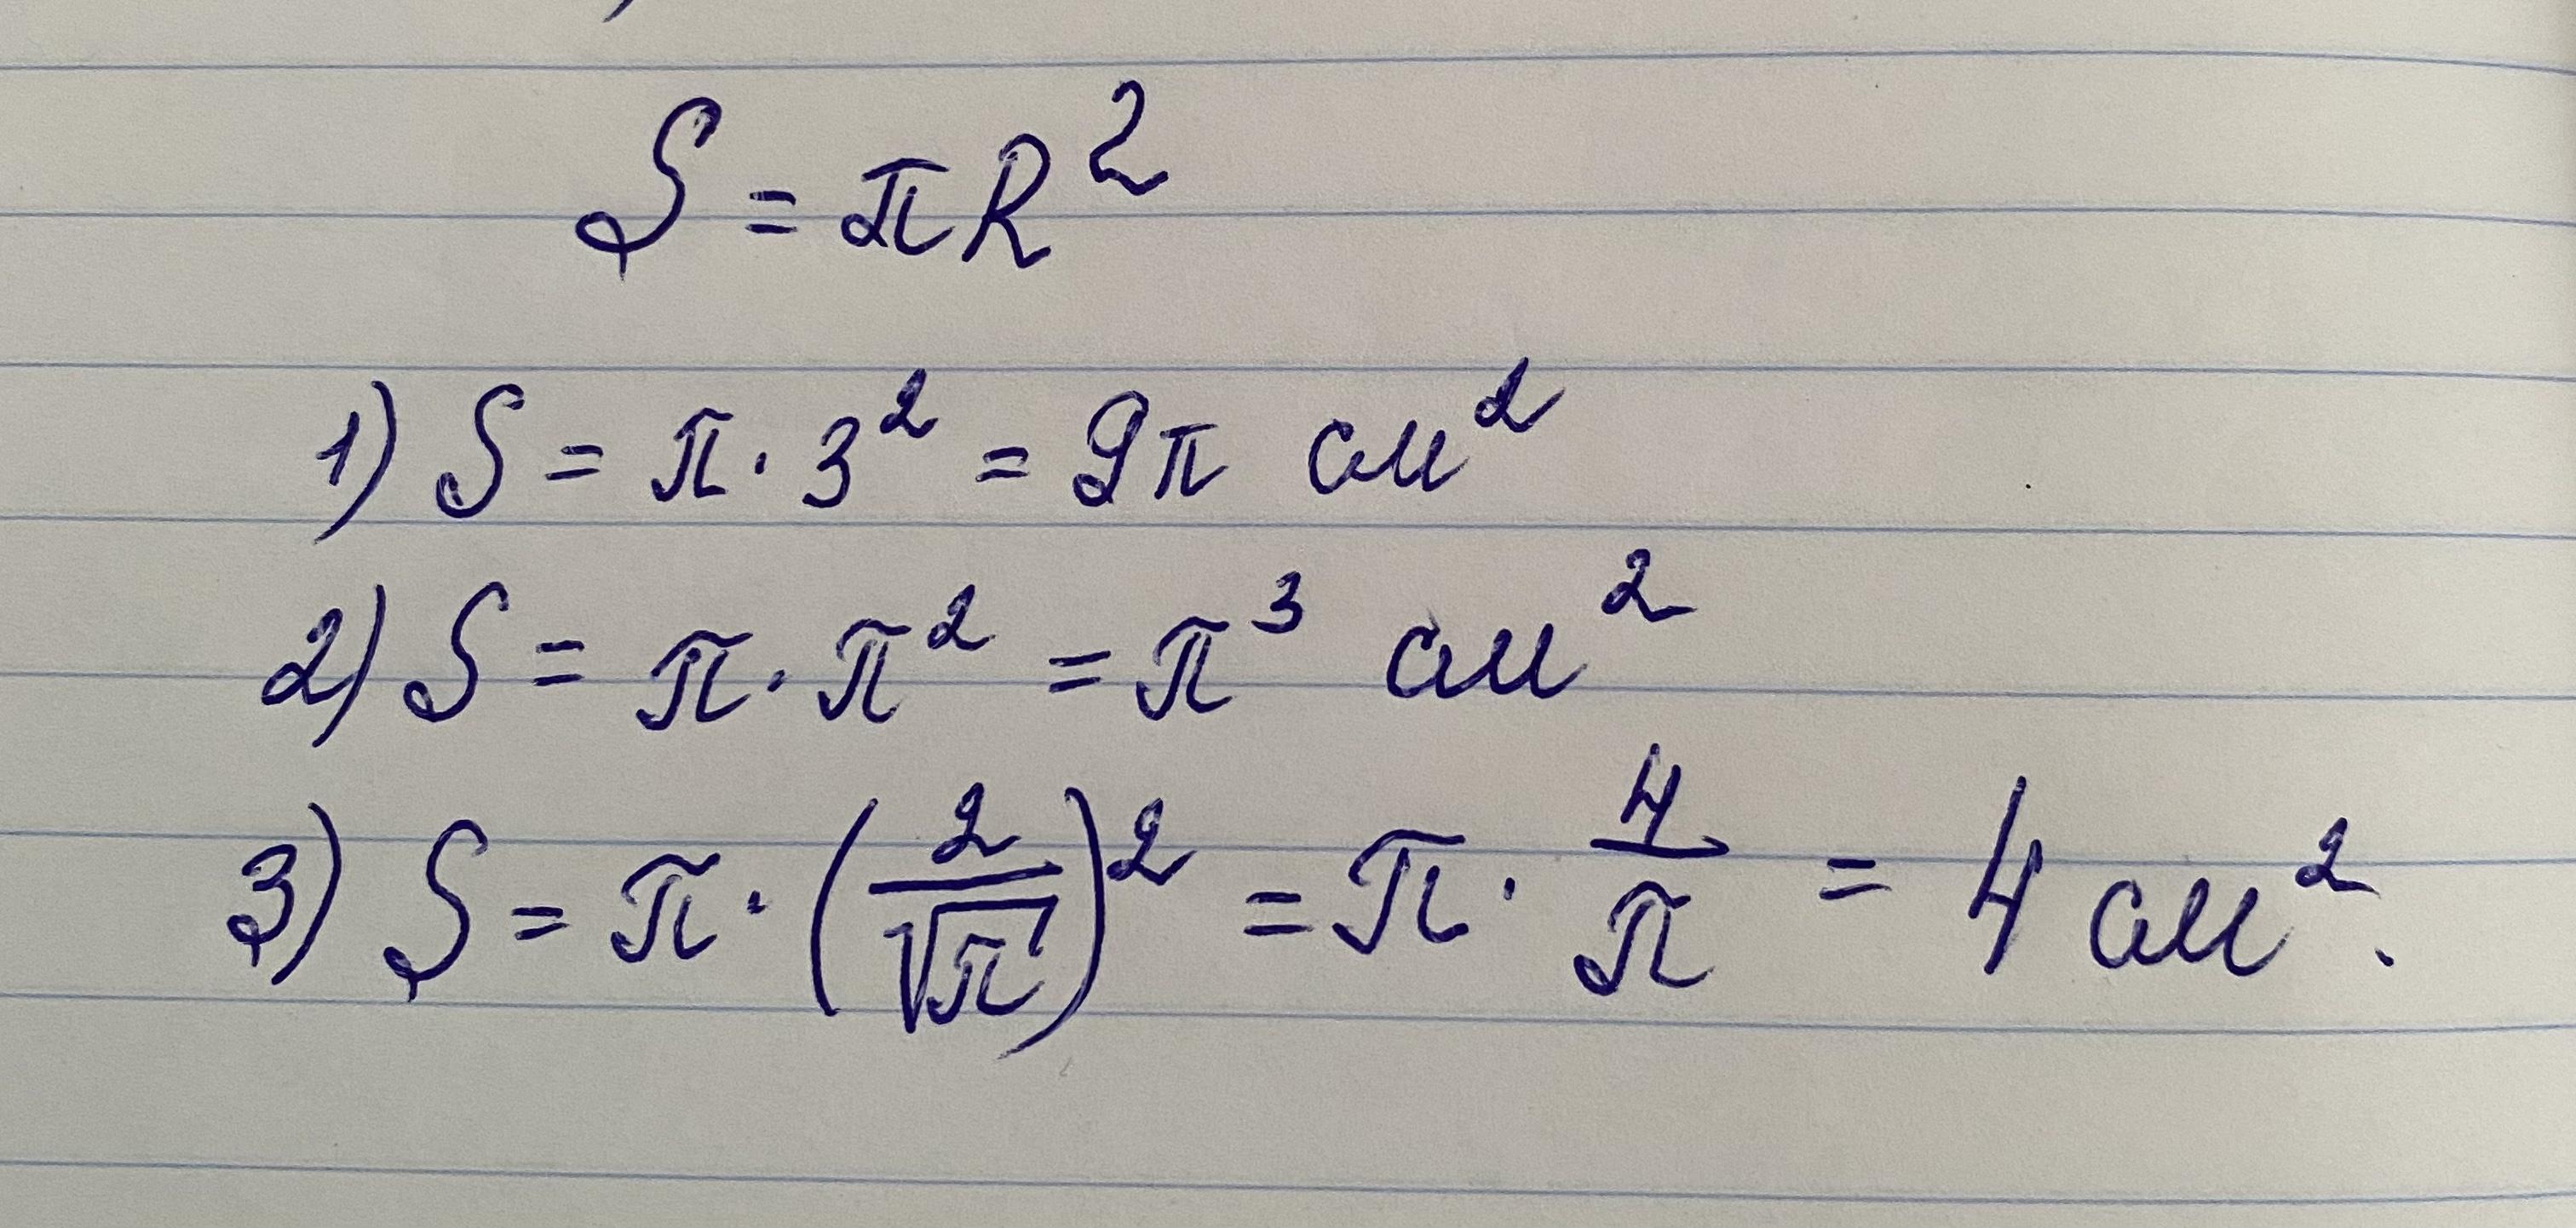 S = πR²
1) S = π · 3² = 9π см²
2) S = π · π² = π³ см²
3) S = π · (2/√π)² = π · 4/π = 4 см².